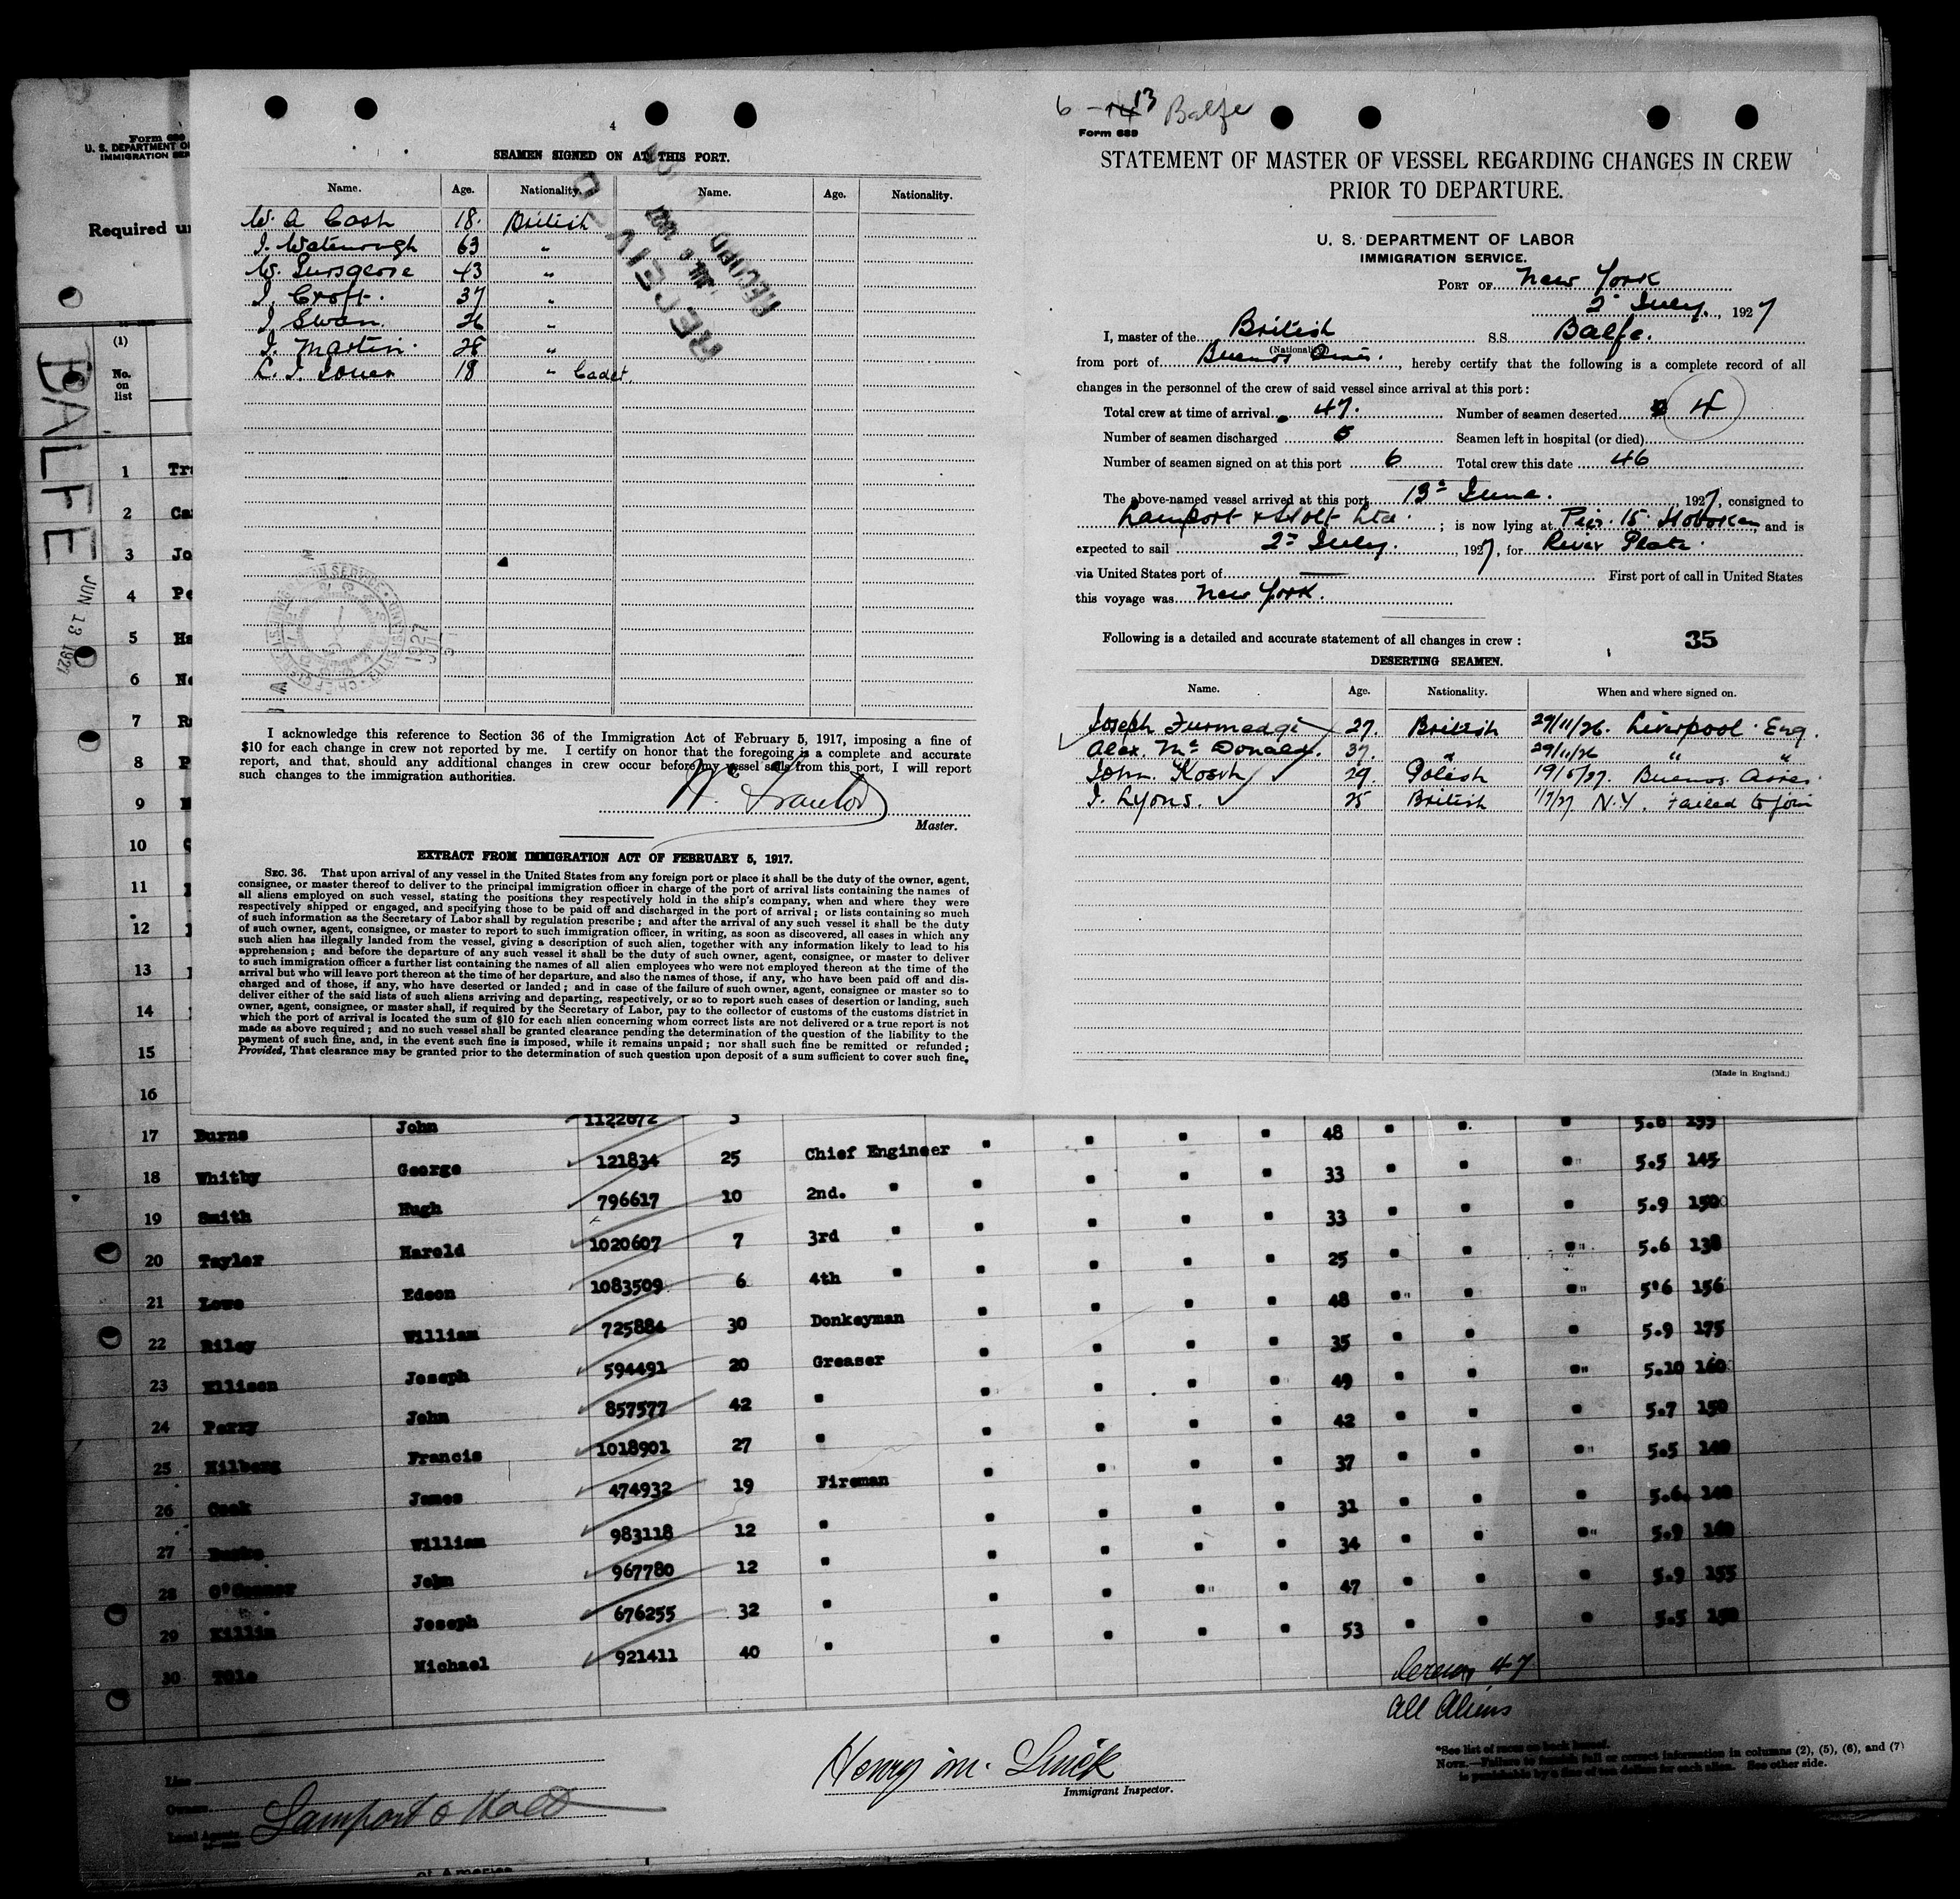 Form 680
U. S. DEPARTMENT OF
IMMIGRATION SER
Required un
(1)
No.
on
list
BALFE
JUN 13 1927
1 Tr
2 Ca
3 Jo
4 Pe
5 Ha
6
7
8 P
9
10
11
12
13
14
15
16
4
SEAMEN SIGNED ON AT THIS PORT.
Name. Age. Nationality. Name. Age. Nationality.
W. A Cash 18. British
63 "
W. 43 "
J. Croft. 37 "
J. Swan. 26 "
J. Martin. 28 "
L. J. Jones 18 " Cadet.
RECEIVED
RECORD
1927
I acknowledge this reference to Section 36 of the Immigration Act of February 5, 1917, imposing a fine of
$10 for each change in crew not reported by me. I certify on honor that the foregoing is a complete and accurate
report, and that, should any additional changes in crew occur before my vessel sails from this port, I will report
such changes to the immigration authorities.
Master.
EXTRACT FROM IMMIGRATION ACT OF FEBRUARY 5, 1917.
SEC. 36. That upon arrival of any vessel in the United States from any foreign port or place it shall be the duty of the owner, agent,
consignee, or master thereof to deliver to the principal immigration officer in charge of the port of arrival lists containing the names of
all aliens employed on such vessel, stating the positions they respectively hold in the ship's company, when and where they were
respectively shipped or engaged, and specifying those to be paid off and discharged in the port of arrival; or lists containing so much
of such information as the Secretary of Labor shall by regulation prescribe; and after the arrival of any such vessel it shall be the duty
of such owner, agent, consignee, or master to report to such immigration officer, in writing, as soon as discovered, all cases in which any
such alien has illegally landed from the vessel, giving a description of such alien, together with any information likely to lead to his
apprehension; and before the departure of any such vessel it shall be the duty of such owner, agent, consignee, or master to deliver
to such immigration officer a further list containing the names of all alien employees who were not employed thereon at the time of the
arrival but who will leave port thereon at the time of her departure, and also the names of those, if any, who have been paid off and dis-
charged and of those, if any, who have deserted or landed; and in case of the failure of such owner, agent, consignee or master so to
deliver either of the said lists of such aliens arriving and departing, respectively, or so to report such cases of desertion or landing, such
owner, agent, consignee, or master shall, if required by the Secretary of Labor, pay to the collector of customs of the customs district in
which the port of arrival is located the sum of $10 for each alien concerning whom correct lists are not delivered or a true report is not
made as above required; and no such vessel shall be granted clearance pending the determination of the question of the liability to the
payment of such fine, and, in the event such fine is imposed, while it remains unpaid; nor shall such fine be remitted or refunded;
Provided, That clearance may be granted prior to the determination of such question upon deposit of a sum sufficient to cover such fine,
6 - 13 Balfe
Form 689
STATEMENT OF MASTER OF VESSEL REGARDING CHANGES IN CREW
PRIOR TO DEPARTURE.
U. S. DEPARTMENT OF LABOR
IMMIGRATION SERVICE.
PORT OF New York
2d July, 1927
I, master of the British S.S. Balfe.
(Nationality)
from port of Buenos Aires., hereby certify that the following is a complete record of all
changes in the personnel of the crew of said vessel since arrival at this port:
Total crew at time of arrival 47. Number of seamen deserted 4
Number of seamen discharged Seamen left in hospital (or died)
Number of seamen signed on at this port 6 Total crew this date 46
The above-named vessel arrived at this port 13th June. 1927, consigned to
Lamport & Holt Ltd.; is now lying at Pier 15 Hoboken, and is
expected to sail 2d July., 1927, for River Plate.
via United States port of First port of call in United States
this voyage was New York.
Following is a detailed and accurate statement of all changes in crew: 35
DESERTING SEAMEN.
Name. Age. Nationality. When and where signed on.
Joseph Furmedgi 27. British 29/11/26. Liverpool. Eng.
Alex. McDonald. 37. " 29/11/26 " "
John. Kosh 29. Polish 19/5/27. Buenos Aires.
J. Lyons. 25 British 1/7/27 N.Y. Failed to join
(Made in England.)
17 Burns John 1122672 3 48 5.6 155
18 Whitby George 121834 25 Chief Engineer " " " " 33 " " " 5.5 145
19 Smith Hugh 796617 10 2nd. " " " " " 33 " " " 5.9 150
20 Taylor Harold 1020607 7 3rd " " " " " 25 " " " 5.6 138
21 Lowe Edson 1083509 6 4th " " " " " 48 " " " 5'6 156
22 Riley William 725884 30 Donkeyman " " " " 35 " " " 5.9 175
23 Ellison Joseph 594491 20 Greaser " " " " 49 " " " 5.10 160
24 Perry John 857577 42 " " " " " 42 " " " 5.7 150
25 Hilberg Francis 1018901 27 " " " " " 37 " " " 5.5 140
26 Cook James 474932 19 Fireman " " " " 31 " " " 5.6. 140
27 William 983118 12 " " " " " 34 " " " 5.9 160
28 O'Connor John 967780 12 " " " " " 47 " " " 5.9 155
29 Killin Joseph 676255 32 " " " " " 53 " " " 5.5 150
30 Michael 921411 40 "
47
All Aliens
Line
Owners
Local Agents Lamport & Holt
Henry M.
Immigrant Inspector.
*See list of races on back hereof.
NOTE.—Failure to furnish full or correct information in columns (2), (5), (6), and (7)
is punishable by a fine of ten dollars for each alien. See other side.
of America